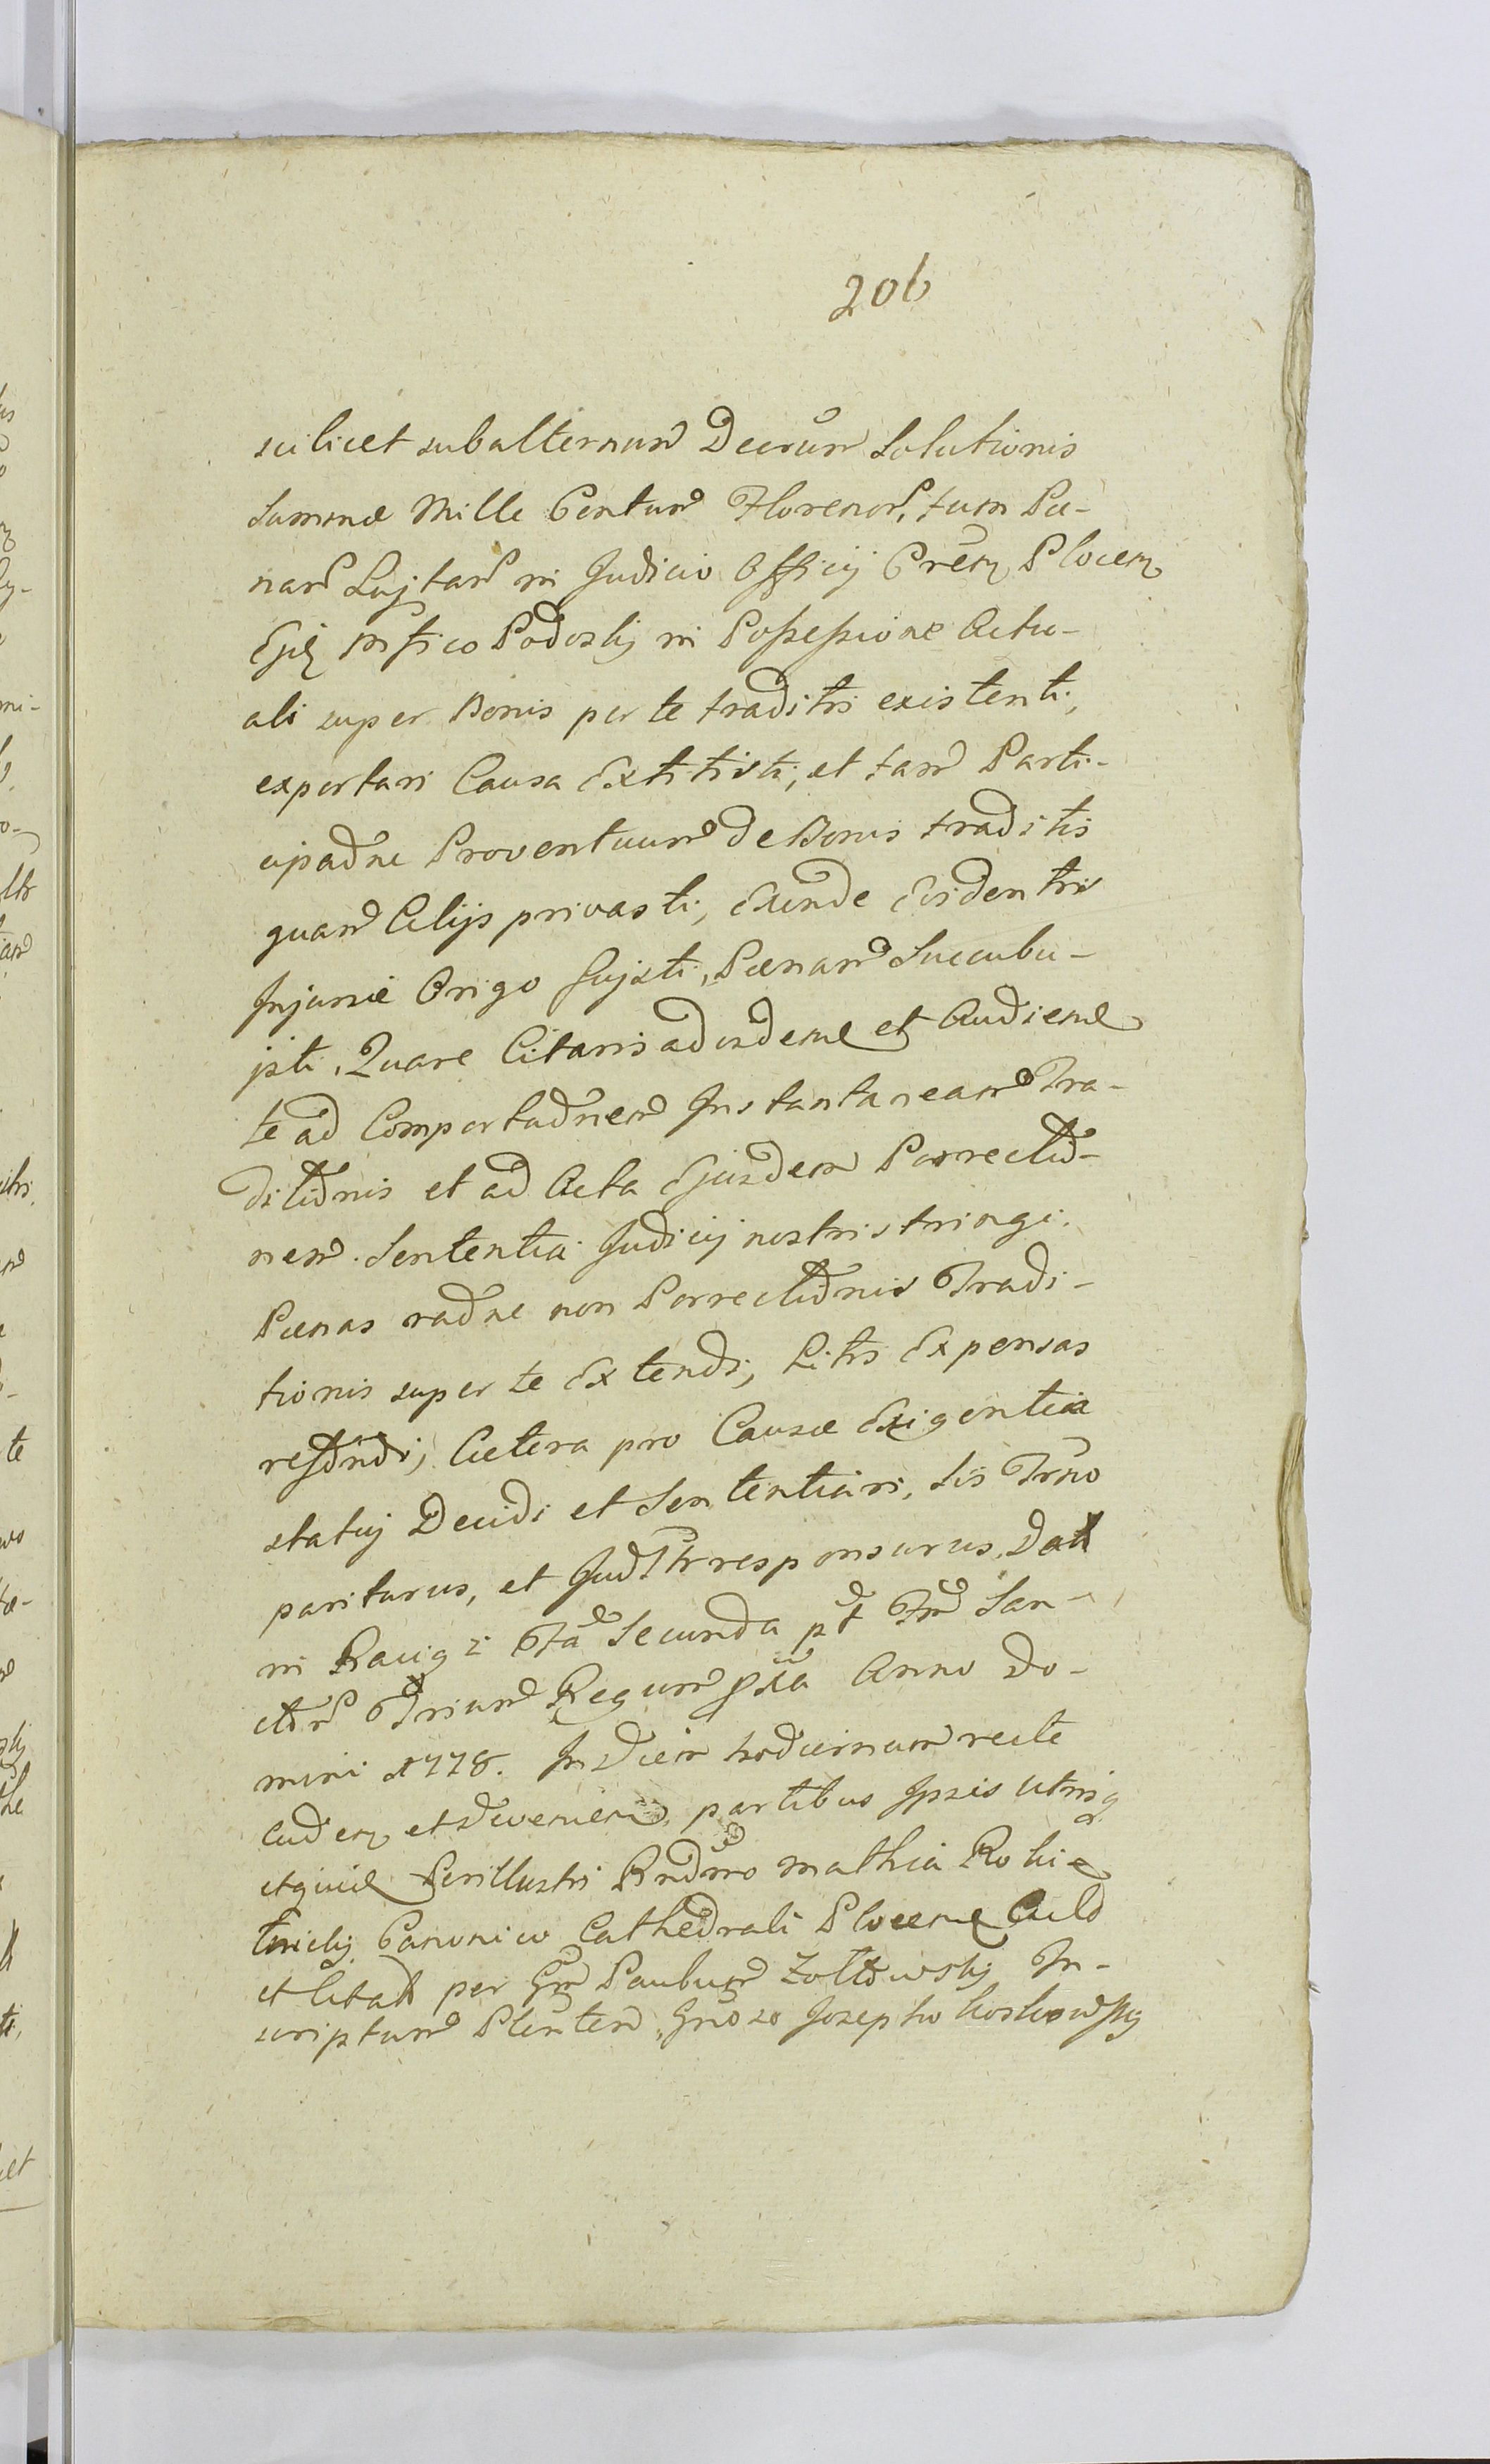 206
scilicet subalternum Decrūm Solutionis
Summæ Mille Centum Florenor, tum Pæ-
nar Lujtar in Judicio Officij Cren Plocen
Mfico Podoskij in Possessione Actu-
ali super Bonis per te traditis existenti,
exportari Causa Extitisti, et tam Parti-
cipaōne Proventuum de Bonis traditis
quam Alijs privasti, Exinde Evidentis
Injuriæ Origo fujsti, Pænam Succubu-
jsti, Quare Citaris ad vidend et Audiend
te ad Comportaōnem Instantaneam Tra-
ditiōnis et ad Acta Ejusdem Porrectiō-
nem. Sententia Judicij nostri stringi.
Pænas raōne non Porrectiōnis Tradi-
tionis super te Extendi, Litis Expensas
refundi, Cætera pro Causæ Exigentia
statuj Decidi et Sententiari, Sis Trno
pariturus, et Judtr responsurus, Datt
in Raciąz Fia Secunda pt Fm San-
ctor Trium Regum pxa Anno Do-
mini 1778. In Diem hodiernum recte
Caden et Devenien, partibus Ipsis utrisq
etquid Perillustri Rndmo Mathia Rokie
tnicky Canonico Cathedrali Plocen
et Citatt per Gm Paulum Zołtowskij In-
scriptum Plenten, Gnoso Josepho Koskowskij